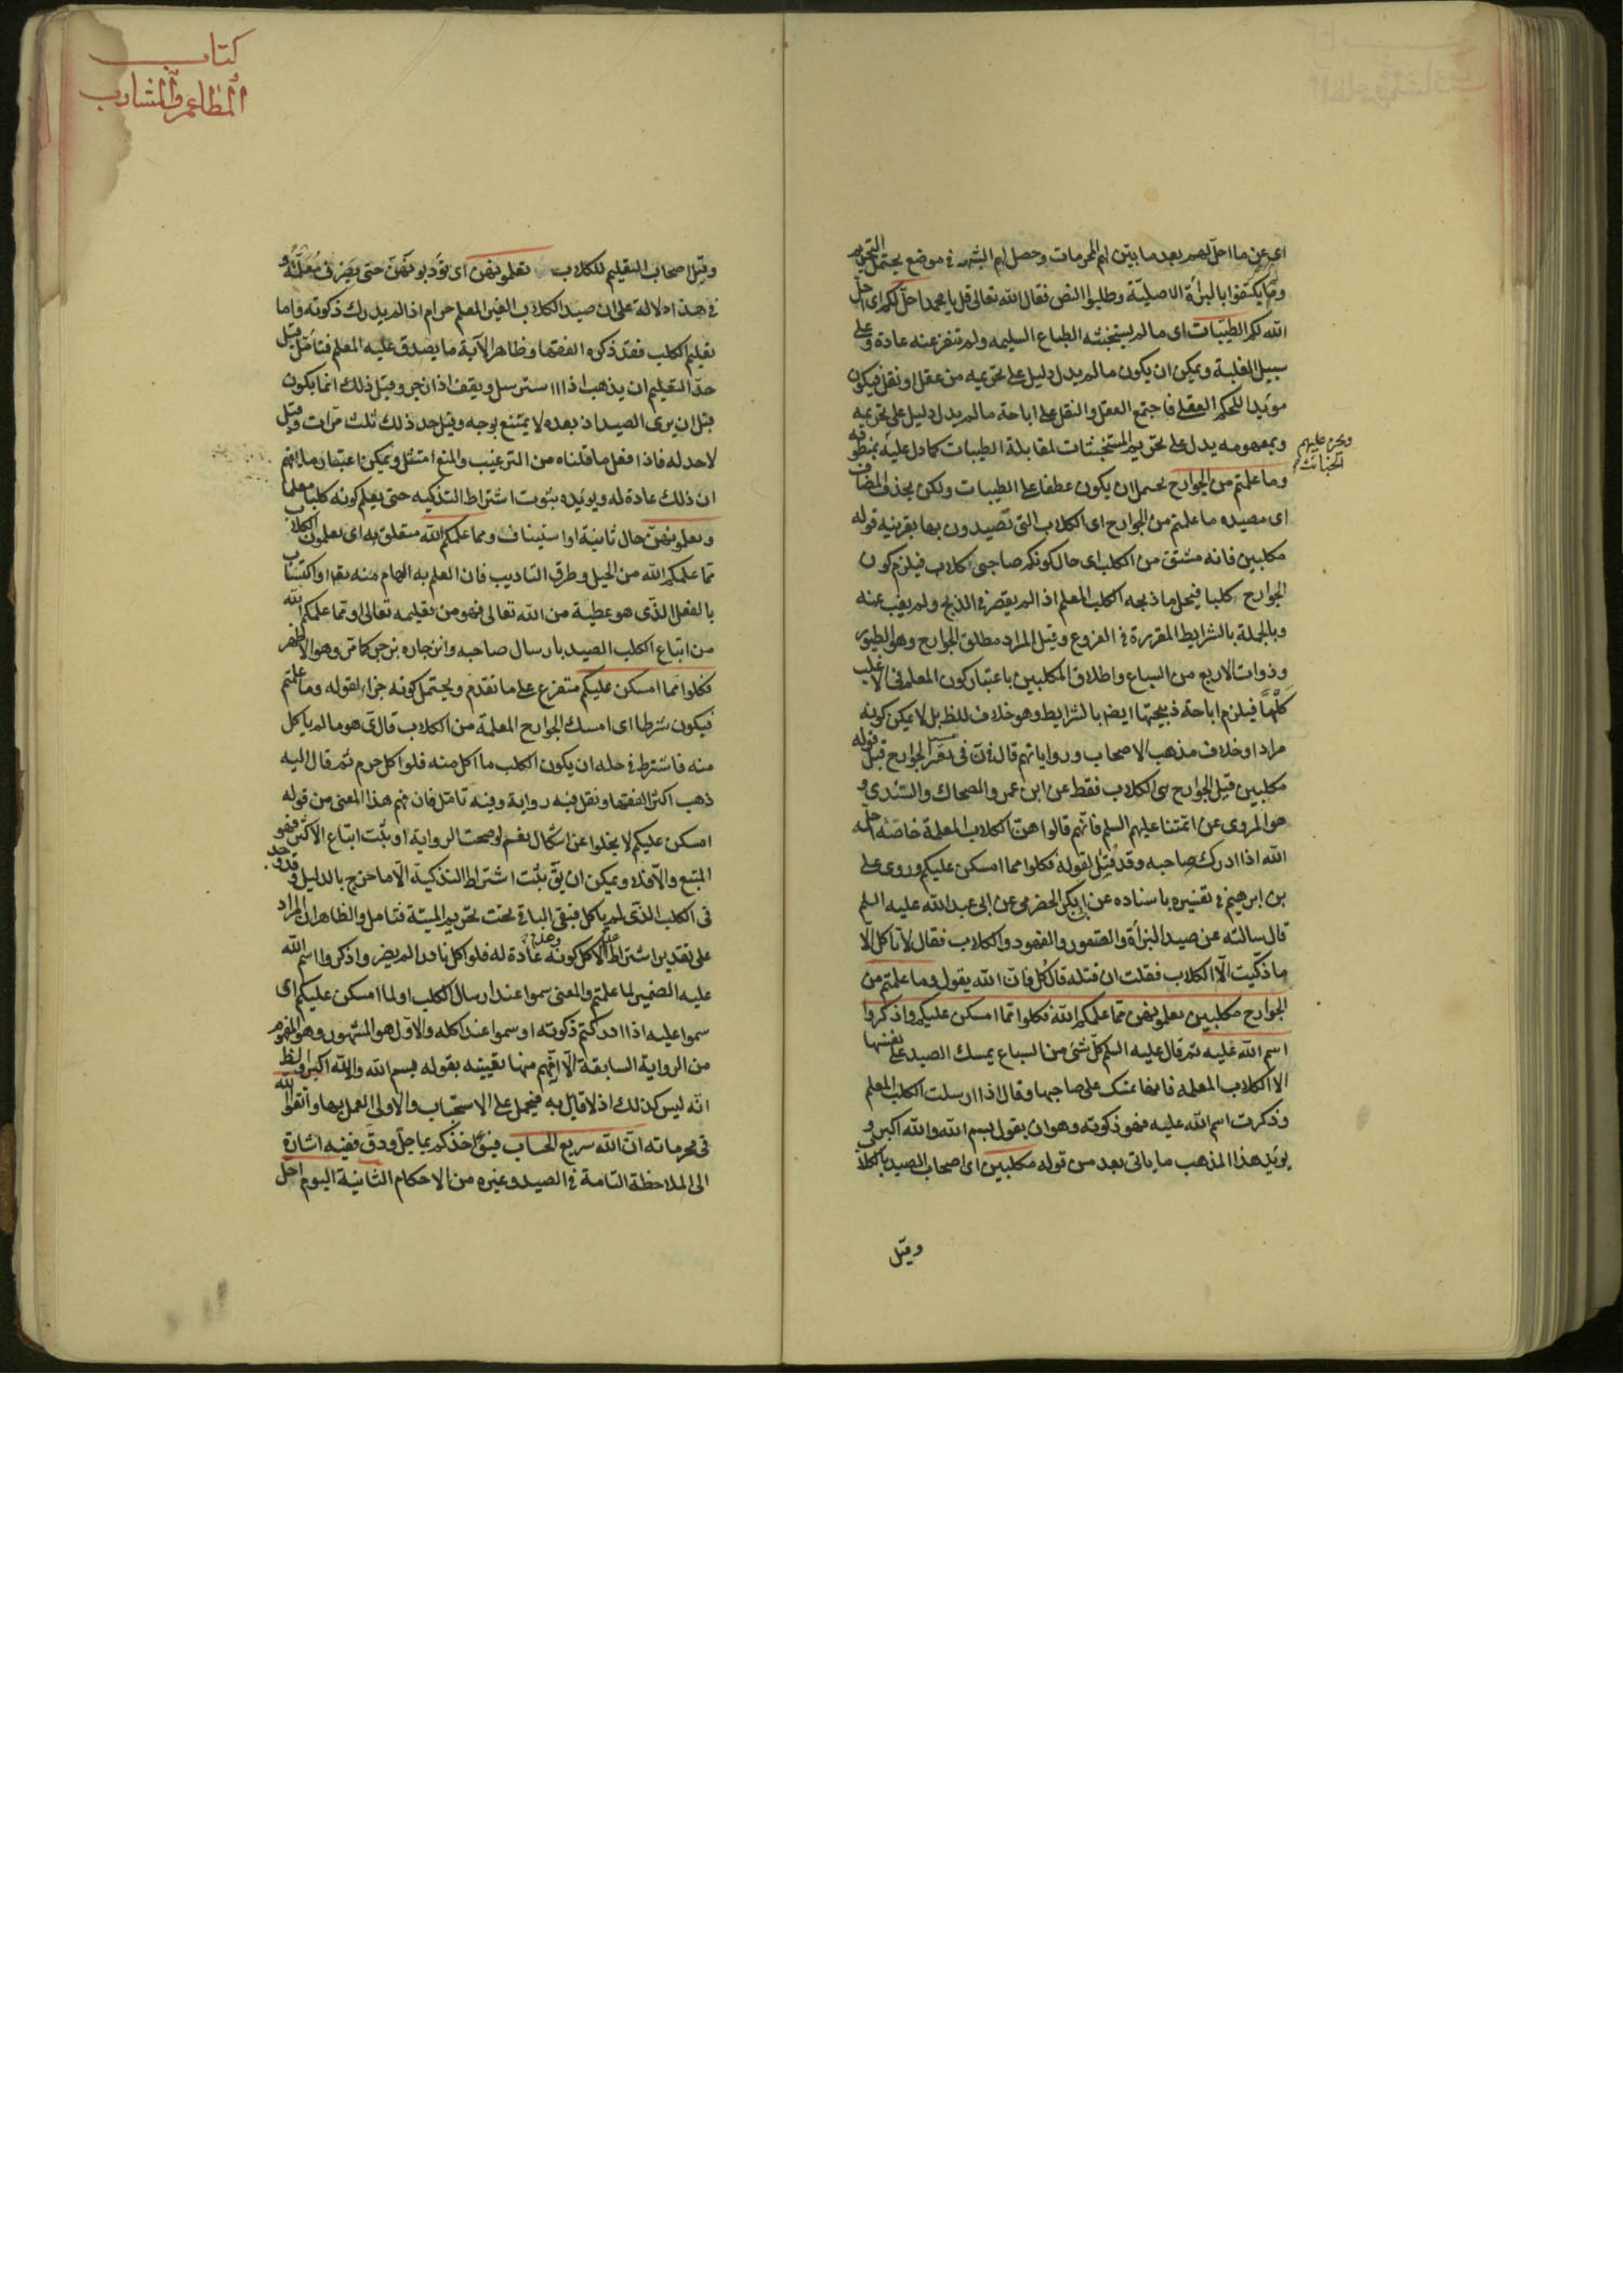 اى عن ما احل لهم بعد ما بين لهم المحرمات وحصل لهم الشبهه فى موضع يحتمل التحريم
وما يكتفوا بالبرأة الاصلية وطلبوا النص فقال الله تعالى قل يا محمد احل لكم اى احل
الله لكم الطيبات اى ما لم يستخبثه الطباع السليمه ولم تنفر عنه عادة وعلى
سبيل الغلبة ويمكن ان يكون ما لم يدل دليل على تحريمه من عقل او نقل فيكون
مؤيدا للحكم العقلى فاجتمع العقل والنقل على اباحة ما لم يدل دليل على تحريمه
وبمفهومه يدل على تحريم المستخبثات لمقابلة الطيبات كما دل عليه بمنطوقه
ويحرم عليهم
الخبائث
وما علمتم من الجوارح يحتمل ان يكون عطفا على الطيبات ولكن بحذف المضاف
اى مصيده ما علمتم من الجوارح اى الكلاب التى تصيدون بها بقرينه قوله
مكلبين فانه مشتق من الكلب اى حال كونكم صاحبى كلاب فيلزم كون
الجوارح كلبا فيحل ما ذبحه الكلب المعلم اذا لم يقصر فى الذبح ولم يغب عنه
وبالجملة بالشرايط المقررة فى الفروع وقيل المراد مطلق الجوارح وهو الطيور
وذوات الاربع من السباع واطلاق المكلبين باعتبار كون المعلم فى الاغلب
كلبا فيلزم اباحة ذبيحتها ايضا بالشرايط وهو خلاف الظ بل لا يمكن كونه
مرادا وخلاف مذهب الاصحاب ورواياتهم قال فى ن فى تفسير الجوارح قبل قوله
مكلبين قيل الجوارح هى الكلاب فقط عن ابن عمر والضحاك والسدى و
هو المروى عن ائمتنا عليهم السلم فانهم قالوا هى الكلاب المعلمة خاصة احله
الله اذا ادركه صاحبه وقد قتل لقوله فكلوا مما امسكن عليكم وروى على
بن ابرهيم فى تفسيره باسناده عن ابى بكر الحضرمى عن ابى عبد الله عليه السلم
قال سالته عن صيد البزأة والصقور والفهود والكلاب فقال لا تاكل الا
ما ذكيت الا الكلاب فقلت ان قتله قال كل فان الله يقول وما علمتم من
الجوارح مكلبين تعلمونهن مما علمكم الله فكلوا مما امسكن عليكم واذكروا
اسم الله عليه ثم قال عليه السلم كل شئ من السباع يمسك الصيد على نفسها
الا الكلاب المعلمه فانها تمسك على صاحبها وقال اذا ارسلت الكلب المعلم
وذكرت اسم الله عليه فهو ذكوته وهو ان يقول بسم الله والله اكبر و
يؤيد هذا المذهب ما ياتى بعد من قوله مكلبين اى اصحاب الصيد بالكلاب
وقيل
كتاب
المطاعم والمشارب
وقيل اصحاب التعليم للكلاب تعلمونهن اى تؤدبونهن حتى يصرن معلمة و
فى هذا دلالة على ان صيد الكلاب الغير المعلم حرام اذا لم يدرك ذكوته واما
تعليم الكلب فقد ذكره الفقها وظاهر الآية ما يصدق عليه المعلم فتامل قيل
حد التعليم ان يذهب اذا استرسل ويقف اذا زجر وقيل ذلك انما يكون
قبل ان يرى الصيد اذ بعده لا يمتنع بوجه وقيل حد ذلك ثلث مرات وقيل
لا حد له فاذا فعل ما قلناه من الترغيب والمنع امتثل ويمكن اعتبار ما يفهم
ان ذلك عادة له ويؤيده ثبوت اشتراط التذكيه حتى يعلم كونه كلبا معلما
وتعلمونهن حال ثانية او استيناف ومما علمكم الله متعلق به اى تعلمون الكلاب
مما علمكم الله من الحيل وطرق التاديب فان العلم به الهام منه تعا او اكتساب
بالفعل الذى هو عطية من الله تعالى فهو من تعليمه تعالى او مما علمكم الله
من اتباع الكلب الصيد بارسال صاحبه وانزجاره بزجره كما مر وهو الاظهر
فكلوا مما امسكن عليكم متفرع على ما تقدم ويحتمل كونه جزاء لقوله وما علمتم
فيكون شرطا اى امسك الجوارح المعلمة من الكلاب قال ق هو ما لم ياكل
منه فاشترط فى حله ان يكون الكلب ما اكل منه فلو اكل حرم ثم قال اليه
ذهب اكثر الفقها ونقل فيه رواية وفيه تامل فان فهم هذا المعنى من قوله
امسكن عليكم لا يخلوا عن اشكال نعم لو صحت الرواية او ثبت اتباع الاكثر فهو
المتبع والا فلا ويمكن ان يق ثبت اشتراط التذكية الا ما خرج بالدليل وقد وجد
فى الكلب الذى لم ياكل فبقى الباقى تحت تحريم الميتة فتامل والظاهر ان المراد
على تقدير اشتراط عدم الاكل كونه وعدمه عادة له فلو اكل نادرا لم يضر واذكروا اسم الله
عليه الضمير لما علمتم والمعنى سموا عند ارسال الكلب او لما امسكن عليكم اى
سموا عليه اذا ادركتم ذكوته او سموا عند اكله والاول هو المشهور وهو المفهوم
من الرواية السابقة الا انه يفهم منها تعيينه بقوله بسم الله والله اكبر والظ
انه ليس كذلك اذ لا قايل به فيحمل على الاستحباب والاولى العمل بها واتقوا الله
فى محرماته ان الله سريع الحساب فيؤاخذكم بما جل ودق ففيه اشارة
الى الملاحظة التامة فى الصيد وغيره من الاحكام الثانية اليوم احل